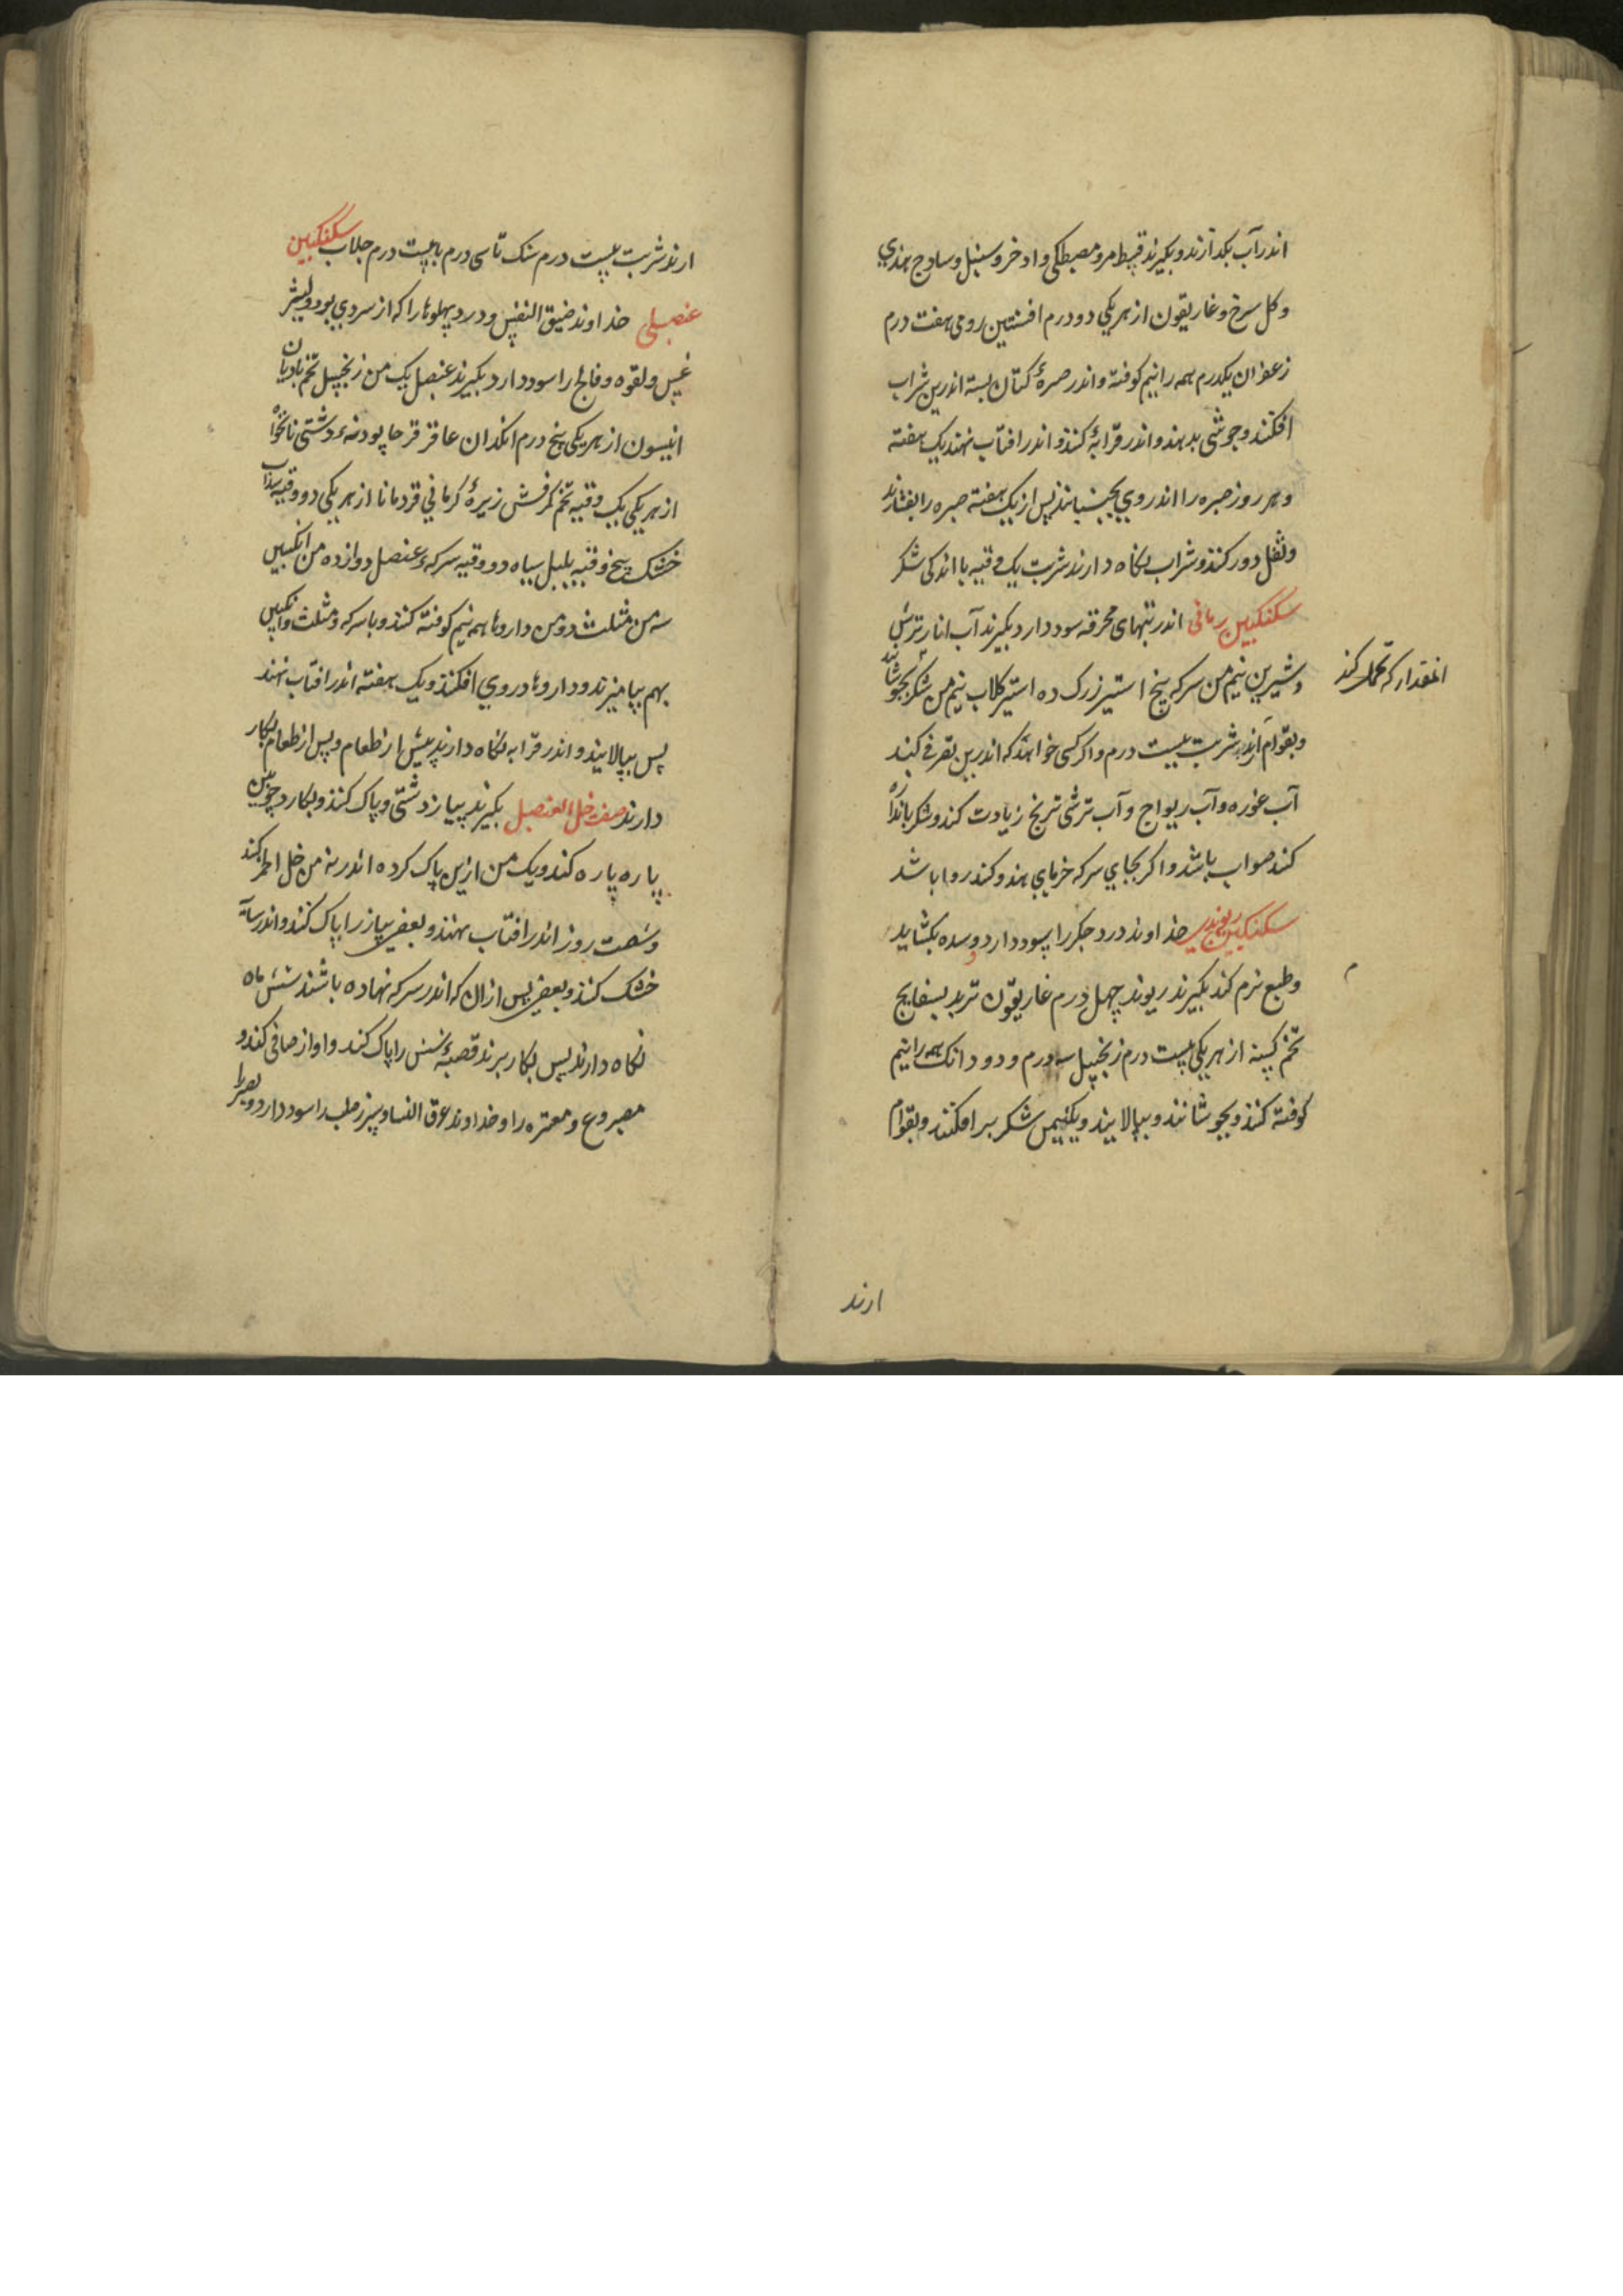 اندر آب بکدازند و بکیرند قسط مر و مصطکی و اذخر و سنبل و سادج هندی
و کل سرخ و غاریقون از هر یکی دو درم افسنتین رومی هفت درم
زعفران یکدرم همه را نیم کوفته و اندر صرهٔ کتان بسته اندرین شراب
افکنند و جوشی بدهند و اندر قرابهٔ کنند و اندر افتاب نهند یک هفته
و هر روز صره را اندر وی بجنبانند پس از یک هفته صره را بفشارند
و ثفل دور کنند و شراب نکاه دارند شربت یک وقیه با اندکی شکر
سکنکبین رمانی اندر تبهای محرقه سود دارد بکیرند آب انار ترش
و شیرین نیم من سرکه پنج استیر زرک ده استیر کلاب نیم من شکر بجوشانند
انمقدار که تحمل کند
و بقوام آرند شربت بیست درم و اکر کسی خواهد که اندرین تصرفی کند
آب غوره و آب ریواج و آب ترشی ترنج زیادت کند و شکر باندازه
کند صواب باشد و اکر بجای سرکه خرمای هندو کند روا باشد
سکنکبین ریوندی خداوند درد جکر را سود دارد و سده بکشاید
و طبع نرم کند بکیرند ریوند چهل درم غاریقون تربد بسفایج
تخم کسنه از هر یکی بیست درم زنجبیل سه درم و دو دانک همه را نیم
کوفته کنند و بجوشانند و بپالایند و یکنیمن شکر بر افکنند و بقوام
ارند
ارند شربت بیست درم سنک تا سی درم با بیست درم جلاب سکنکبین
عنصلی خداوند ضیق النفس و درد پهلوها را که از سردی بود و لیثر
غیس و لقوه و فالج را سود دارد بکیرند عنصل یک من زنجبیل تخم بادیان
انیسون از هر یکی پنج درم انکدان عاقر قرحا پودنهٔ دشتی نانخواه
از هر یکی یک وقیه تخم کرفس زیرهٔ کرمانی قردمانا از هر یکی دو وقیه سداب
خشک پنج وقیه پلپل سیاه دو وقیه سرکهٔ عنصل دوازده من انکبین
سه من مثلث دو من داروها همه نیم کوفته کنند و با سرکه و مثلث و انکبین
بهم بیامیزند و داروها در وی افکنند و یک هفته اندر افتاب نهند
پس بپالایند و اندر قرابه نکاه دارند پیش از طعام و پس از طعام بکار
دارند صفت خل العنصل بکیرند پیاز دشتی و پاک کنند و بکارد چوبین
پاره پاره کنند و یک من ازین پاک کرده اندر نه من خل الخمر کنند
و شصت روز اندر افتاب نهند و بعضی پیاز را پاک کنند و اندر سایه
خشک کنند و بعضی پس از ان که اندر سرکه نهاده باشند شش ماه
نکاه دارند پس بکار برند قصبهٔ شش را پاک کند و اواز صافی کند و
مصروع و معتره را و خداوند عرق النسا و سپرز صلب را سود دارد و بصر را